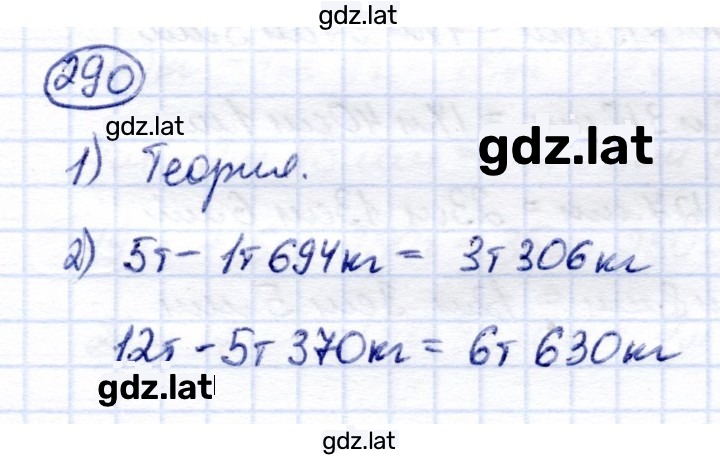 gdz.lat
290
gdz.lat
gdz.lat
1) Теория.
2) 5т - 1т 694кг = 3т 306кг
12т - 5т 370кг = 6т 630кг
gdz.lat
gdz.lat